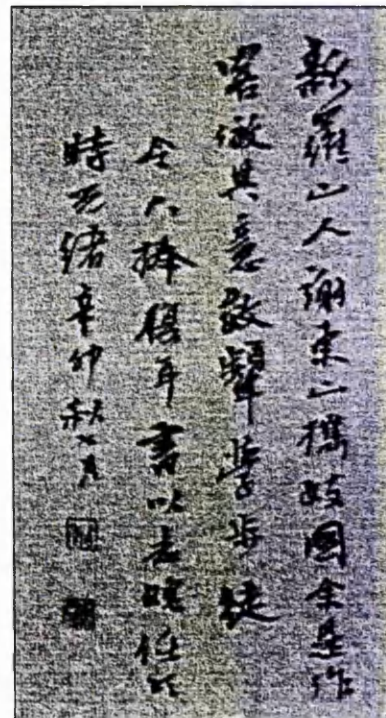 新羅山人謝東山攜妓圖余是作
畧倣其意效顰學步徒
令人捧腹耳書以志愧任頤
時光緒辛卯秋七月